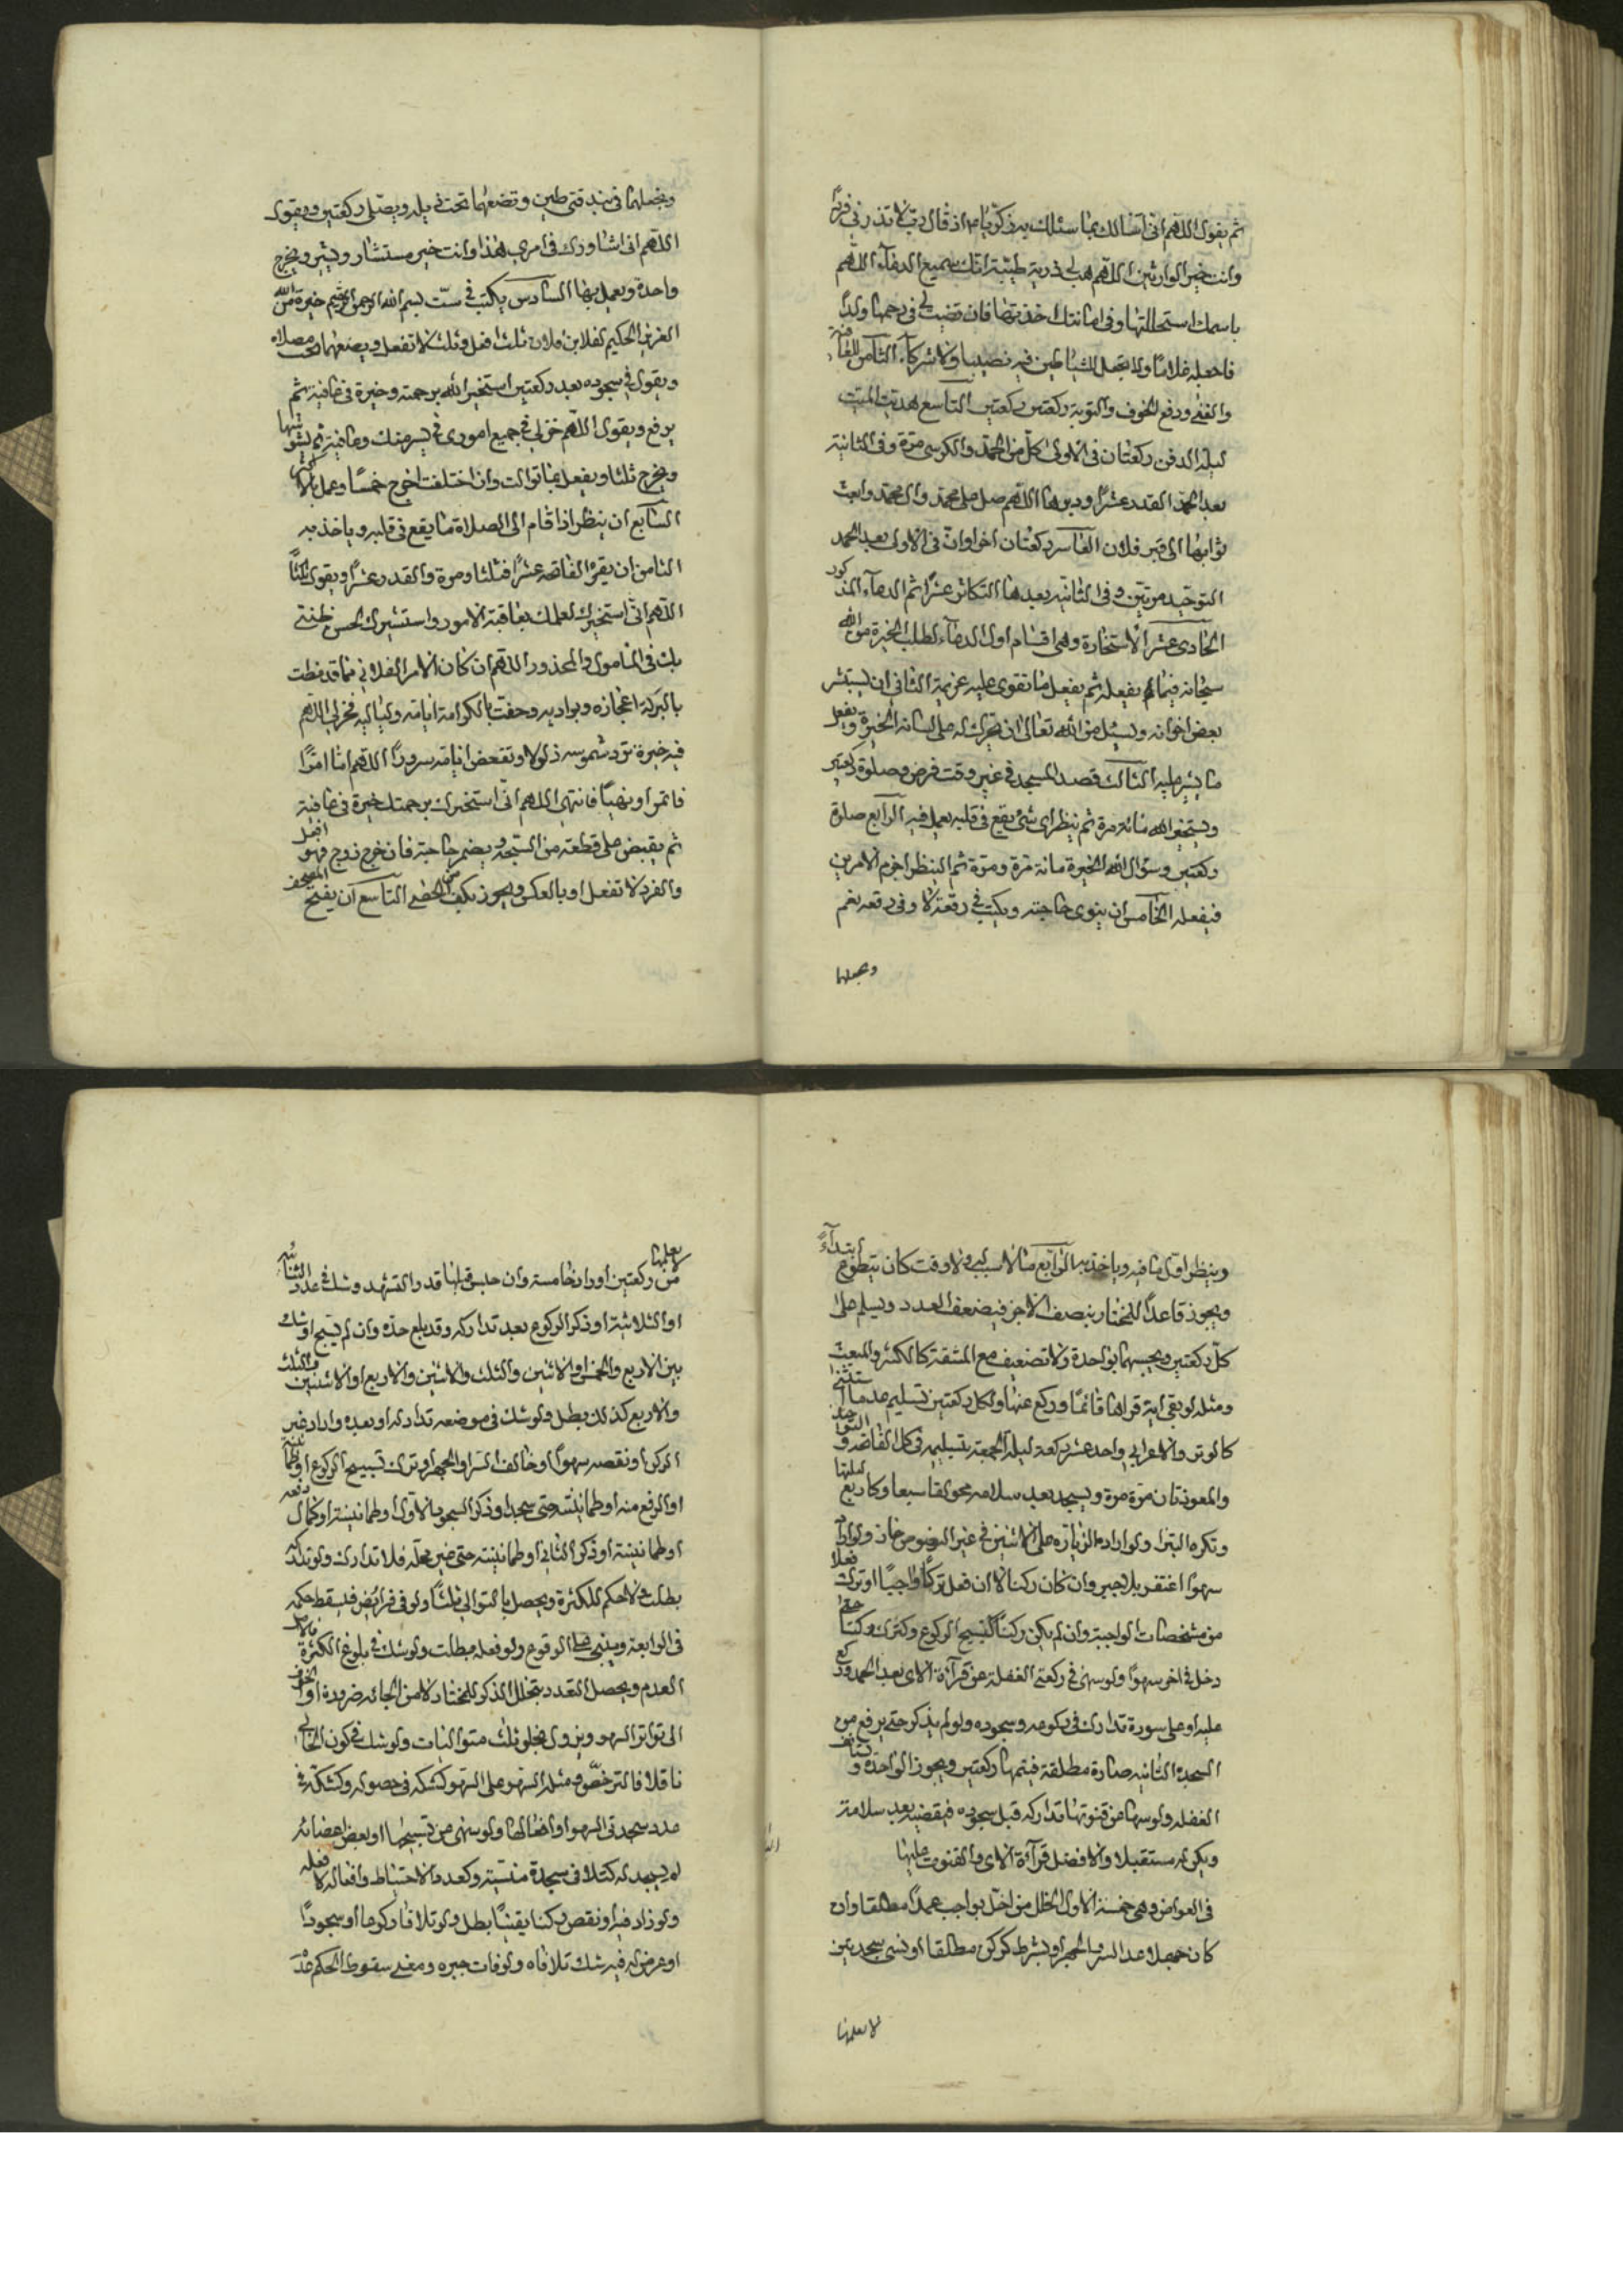 ثم يقول اللهم انى اسالك بما سئلك به زكريا ع اذ قال رب لا تذرنى فردًا
وانت خير الوارثين اللهم هب لى ذرية طيبة انك سميع الدعآء اللهم
باسمك استحللتها وفى امانتك اخذتها فان قضيت لى فى رحمها ولدًا
فاجعله غلامًا ولا تجعل للشياطين فيه نصيبا ولا شركآء الثامن للفاقة
والغنى ودفع الخوف والتوبة ركعتين ركعتين التاسع هدية الميت
ليلة الدفن ركعتان فى الاولى كل من الحمد والكرسى مرة وفى الثانية
بعد الحمد القدر عشرًا وبعدها اللهم صل على محمد وال محمد وابعث
ثوابها الى قبر فلان العاشر ركعتان اخراوان فى الاولى بعد الحمد
التوحيد مرتين وفى الثانية بعدها التكاثر عشرًا ثم الدعآء المذكور
الحادى عشر الاستخارة وهى اقسام اول الدعآء لطلب الخيرة من الله
سبحانه فيما يفعله ثم يفعل ما تقوى عليه عزيمة الثانى ان يستشير
بعض اخوانه ويسئل من الله تعالى ان يجرى له على لسانه الخيرة ويفعل
ما يشير عليه الثالث قصد المسجد فى غير وقت فرض وصلوة ركعتين
ويستخير الله مائة مرة ثم ينظر اى شئ يقع فى قلبه يعمل فيه الرابع صلوة
ركعتين وسؤال الله الخيرة مائة مرة ومرة ثم النظر احزم الامرين
فيفعله الخامس ان ينوى حاجته ويكتب فى رقعة لا وفى رقعة نعم
ويجعلها
ويجعلهما فى بندقتى طين وتضعهما تحت ذيله ويصلى ركعتين ويقول
اللهم انى اشاورك فى امرى هذا وانت خير مستشار ومشير ويخرج
واحدة ويعمل بها السادس يكتب فى ست بسم الله الرحمن الرحيم خيرة من الله
العزيز الحكيم لفلان بن فلان ثلث افعل وثلث لا تفعل ويضعها تحت مصلاه
ويقول فى سجوده بعد ركعتين استخير الله برحمته وخيرة فى عافية ثم
يرفع ويقول اللهم خر لى فى جميع امورى فى يسر منك وعافية ثم يشوشها
ويخرج ثلثا ويفعل بما توالت وان اختلفت اخرج خمسًا وعمل بالاكثر
السابع ان ينظر اذا قام الى الصلاة ما يقع فى قلبه وياخذ به
الثامن ان يقرء الفاتحة عشرًا فثلثا ومرة والقدر عشرًا ويقول ثلثًا
اللهم انى استخيرك لعلمك بعاقبة الامور واستشيرك لحسن ظنى
بك فى المامول والمحذور اللهم ان كان الامر الفلانى مما قد نيطت
بالبركة اعجازه وبواديه وحفت بالكرامة ايامه ولياليه فخر لى اللهم
فيه خيرة ترد شموسه ذلولا وتقعض ايامه سرورًا اللهم اما امرًا
فاتمر او نهيًا فانتهى اللهم انى استخيرك برحمتك خيرة فى عافية
ثم يقبض على قطعة من السبحة ويضمر حاجته فان خرج زوج فهو افعل
والفرد لا تفعل او بالعكس ويجوز بكف من الحصى التاسع ان يفتح المصحف
وينظر اول ما فيه وياخذ به الرابع ما لا سبب له ولا وقت كان يتطوع ابتدآءً
ويجوز قاعدًا للمختار بنصف الاجر فيضعف العدد ويسلم على
كل ركعتين ويحسبهما بواحدة ولا تضعيف مع المشقة كالكبر والمبعث
ومثله لو بقى اية قراها قائمًا وركع عنها ولكل ركعتين تسليم عدا ما استثنى
كالوتر والاعرابى واحد عشر ركعة ليلة الجمعة بتسليمة فى كل الفاتحة والتوحيد
والمعوذتان مرة مرة ويسجد بعد سلامه محولقا سبعا وكاربع ليلتها
وتكره البترا ولو اراد الزيادة على الاثنين فى غير المنصوص جاز ولو زاد
سهوا اغتفر بلا جبر وان كان ركنا الا ان فعل تركًا واجبًا او ترك فعلا
من مشخصات الواجبة وان لم يكن ركنًا كتسبيح الركوع وكترك ركنًا حتى
دخل فى اخر سهوًا ولو سهى فى ركعتى الغفلة عن قرآءة الاى بعد الحمد وركع
عليه او على سورة تدارك فى ركوعه وسجوده ولو لم يذكر حتى يرفع من
السجدة الثانية صارة مطلقة فيتمها ركعتين ويجوز الواحدة ويستانف
الغفلة ولو سها عن قنوتها تداركه قبل سجوده فيقضيه بعد سلامة
ويكن له مستقبلا والافضل قرآءة الاى والقنوت عليها
فى العوارض وهى خمسة الاول الخلل من اخل بواجب عمدًا مطلقا وان
كان جهلا عدا السر والجهر او بشرط كركن مطلقا او نسى سجدتين
لا يعلمها
لا يعلمها من ركعتين اوراد خامسة وان جلس قبلها قدر التشهد وشك فى عدد الثنائية
او الثلاثية او ذكر الركوع بعد تداركه وقد بلغ حده وان لم يسبح او شك
بين الاربع والخمس والاثنين والثلث والاثنين والاربع او الاثنين والثلث
والاربع كذلك بطل ولو شك فى موضعه تداركه او بعده وازاد غير
الركن او نقصه سهوًا او خالف السر والجهر او ترك تسبيح الركوع او طمانينته
او الرفع منه او طمانينته حتى سجد او ذكر السجود الاول او طمانينته او كمال رفعه
او طمانينته او ذكر الثانى او طمانينته حتى مضى محله فلا تدارك ولو تداركه
بطلت ولا حكم للكثرة ويحصل بالتوالى ثلثًا ولو فى فرائض فيسقط حكمه
فى الرابعة ويبنى على الوقوع ولو فعله بطلت ولو شك فى بلوغ الكثرة فالاصل
العدم ويحصل التعدد بتخلل الذكر للمختار لا من الجائه ضرورة او الخوف
الى تواتر السهو ويزول بخلو ثلث متواليات ولو شك فى كون الخالى
ناقلا فالترخص ومثله السهو على السهو كشكه فى حصوله وكشكه فى
عدد سجدتى السهو او افعالها ولو سهى عن تسبيحها او بعض اعضائه
لم يسجد له كتلا فى سجدة منسية وكعدد الاحتياط وافعاله لا فعله
ولو زاد فيه او نقص ركنا يقينًا بطل ولو تلافا ركوعا او سجودًا
او عرض له فيه شك تلافاه ولو فات جبره ومعنى سقوط الحكم عدم